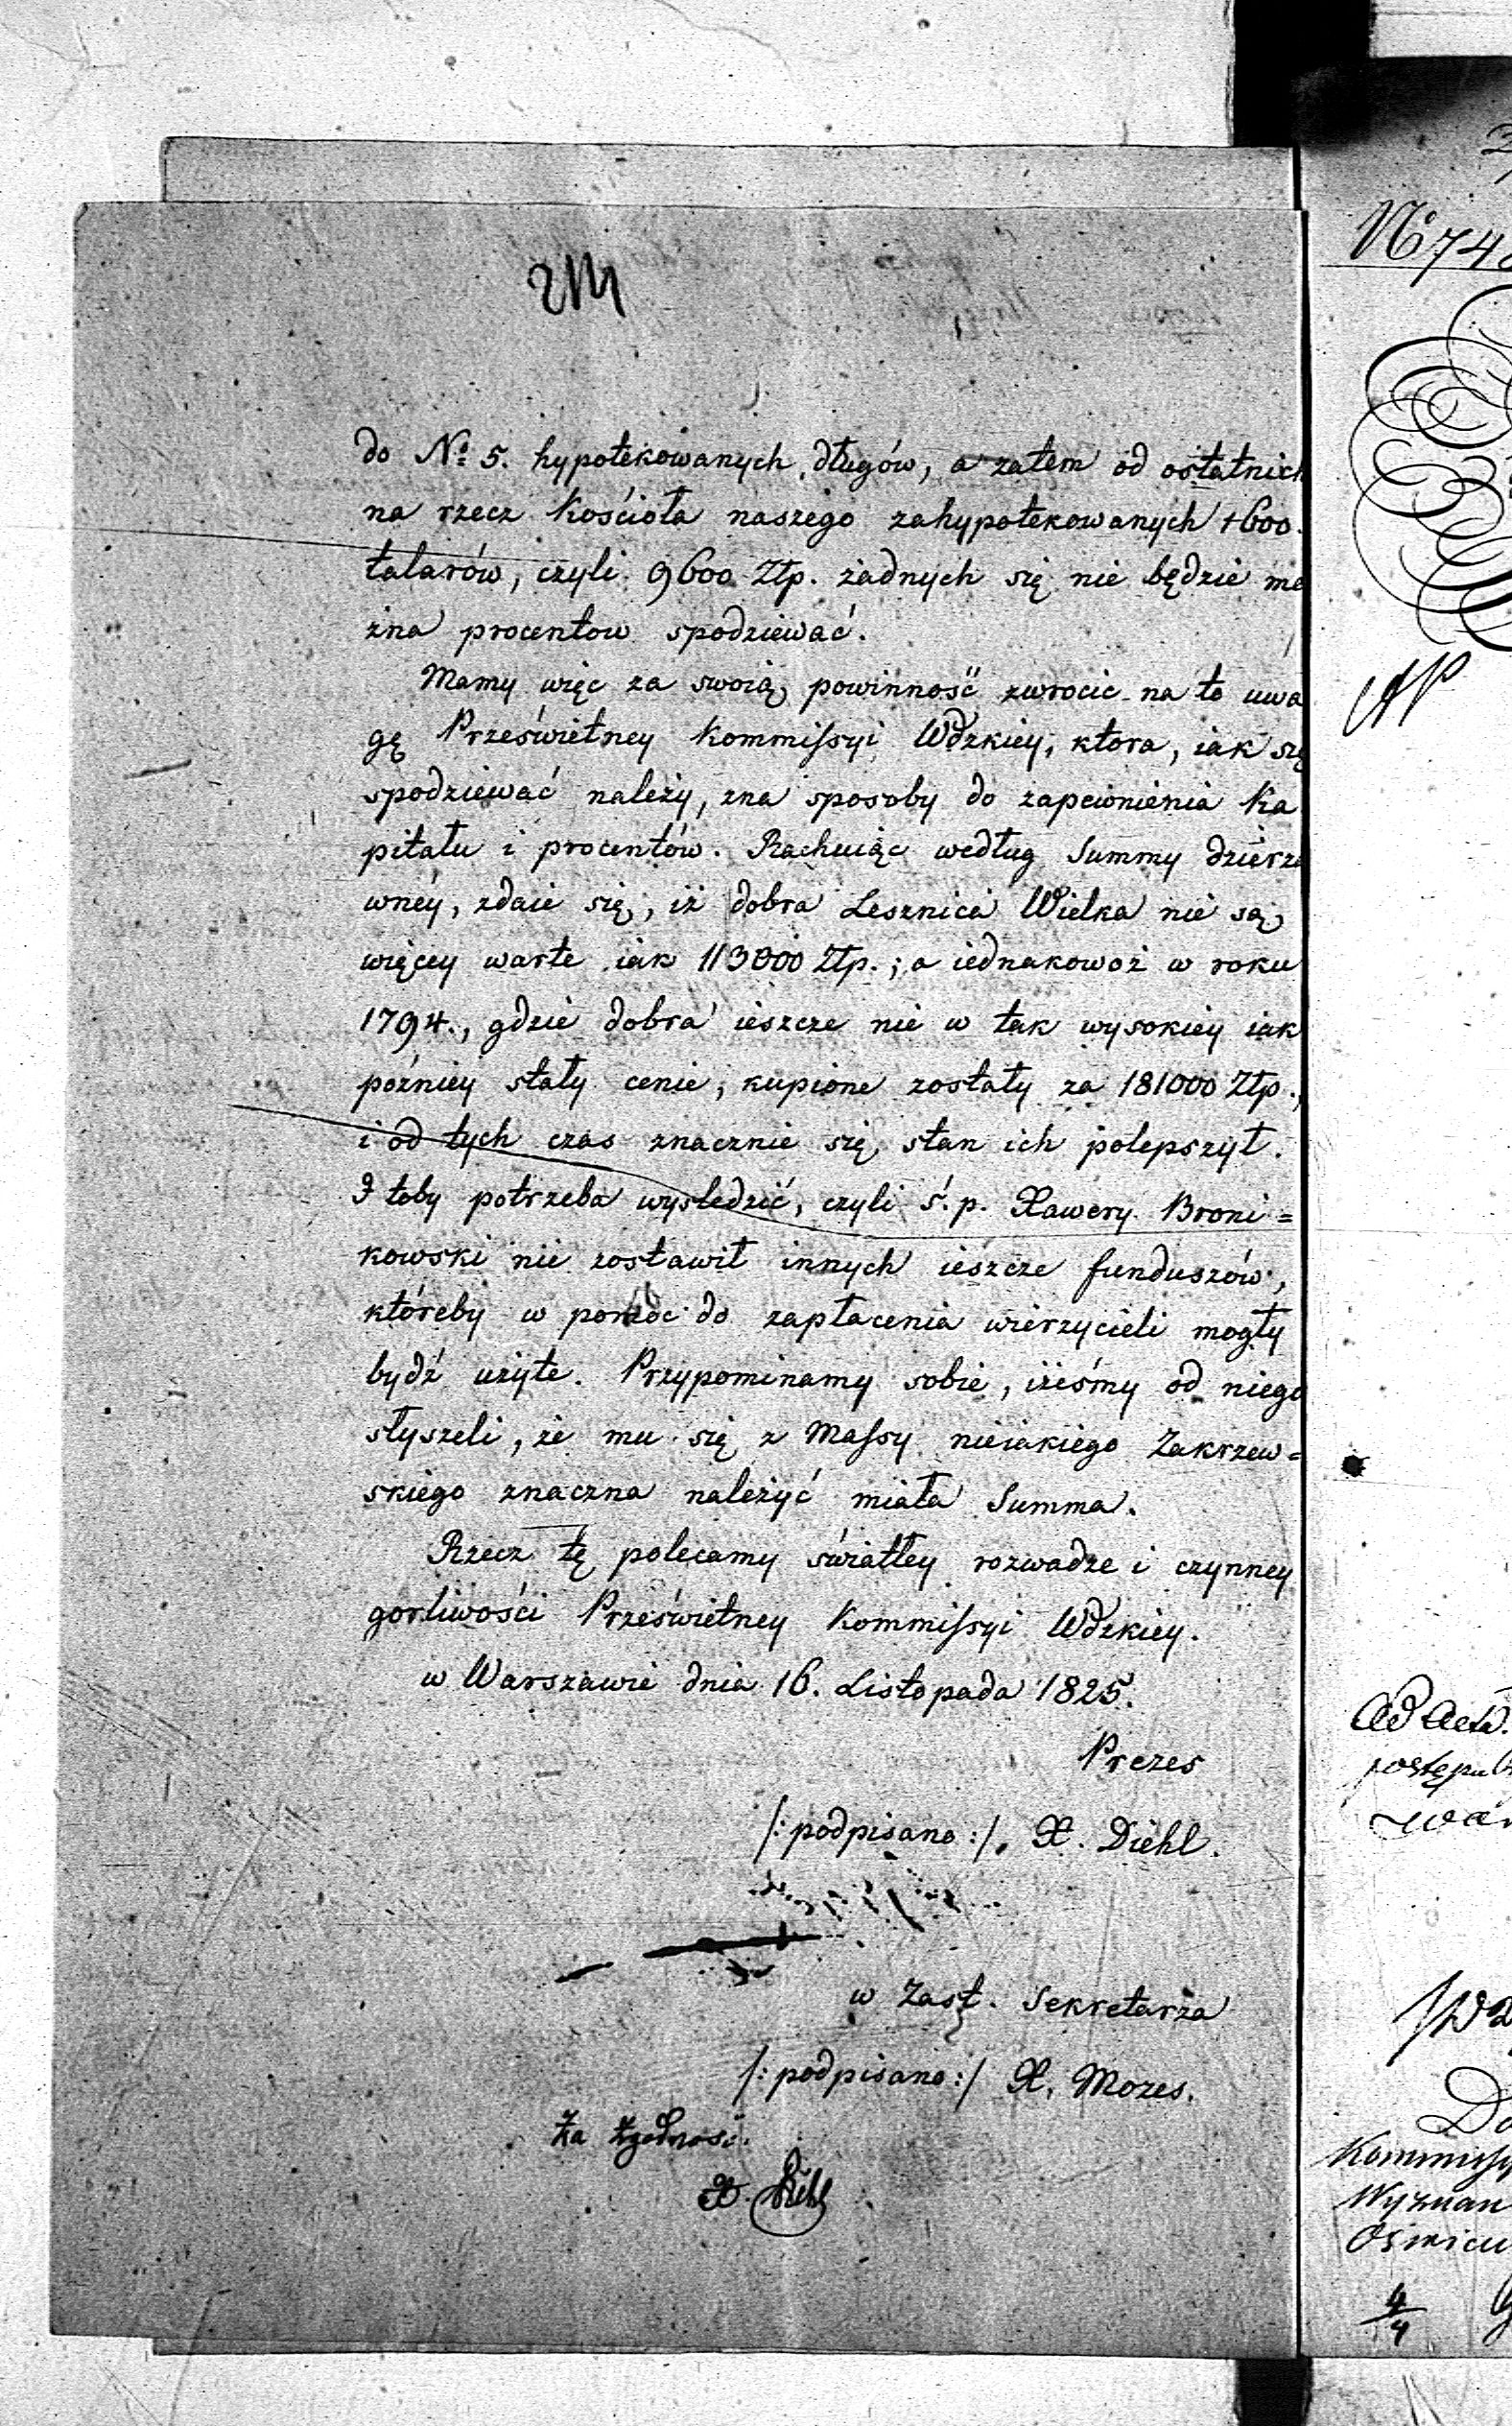 do No 5. hypotekowanych długów, a zatem od ostatnich
na rzecz Kościoła naszego zahypotekowanych 1600.
talarów, czyli 9600 Złp. żadnych się nie będzie mo
żna procentow spodziewać.
Mamy więc za swoią powinność zwrocic na to uwa
gę Prześwietney Kommissyi Wdzkiey, ktora, iak się
spodziewać należy, zna sposoby do zapewnienia Ka
pitału i procentów. Rachuiąc według Summy dzierża
wnéy, zdaie się, iż dobra Lesznica Wielka nie są
więcey warte iak 113000 Złp.; a iednakowoż w roku
1794., gdzie dobra ieszcze nie w tak wysokiey iak
poźniey stały cenie, kupione zostały za 181000 Złp.,
i od tych czas znacznie się stan ich polepszył.
I toby potrzeba wysledzić, czyli ś. p. Xawery Broni=
kowski nie zostawił innych ieszcze funduszów,
któreby w pomoc do zapłacenia wierzycieli mogły
bydź użyte. Przypominamy sobie, iżeśmy od niego
słyszeli, że mu się z Massy nieiakiego Zakrzew=
skiego znaczna należyć miała Summa.
Rzecz tę polecamy światłey rozwadze i czynney
gorliwości Prześwietney Kommissyi Wdzkiey.
w Warszawie dnia 16. Listopada 1825.
Prezes
/: podpisano :/. X. Diehl.
w Zast. Sekretarza
/: podpisano :/ X. Mozes.
Za zgodność
X. Diehl
No 748
Ad Acta.
postępu
Kommissy
Wyznan
Oświcu
4/4